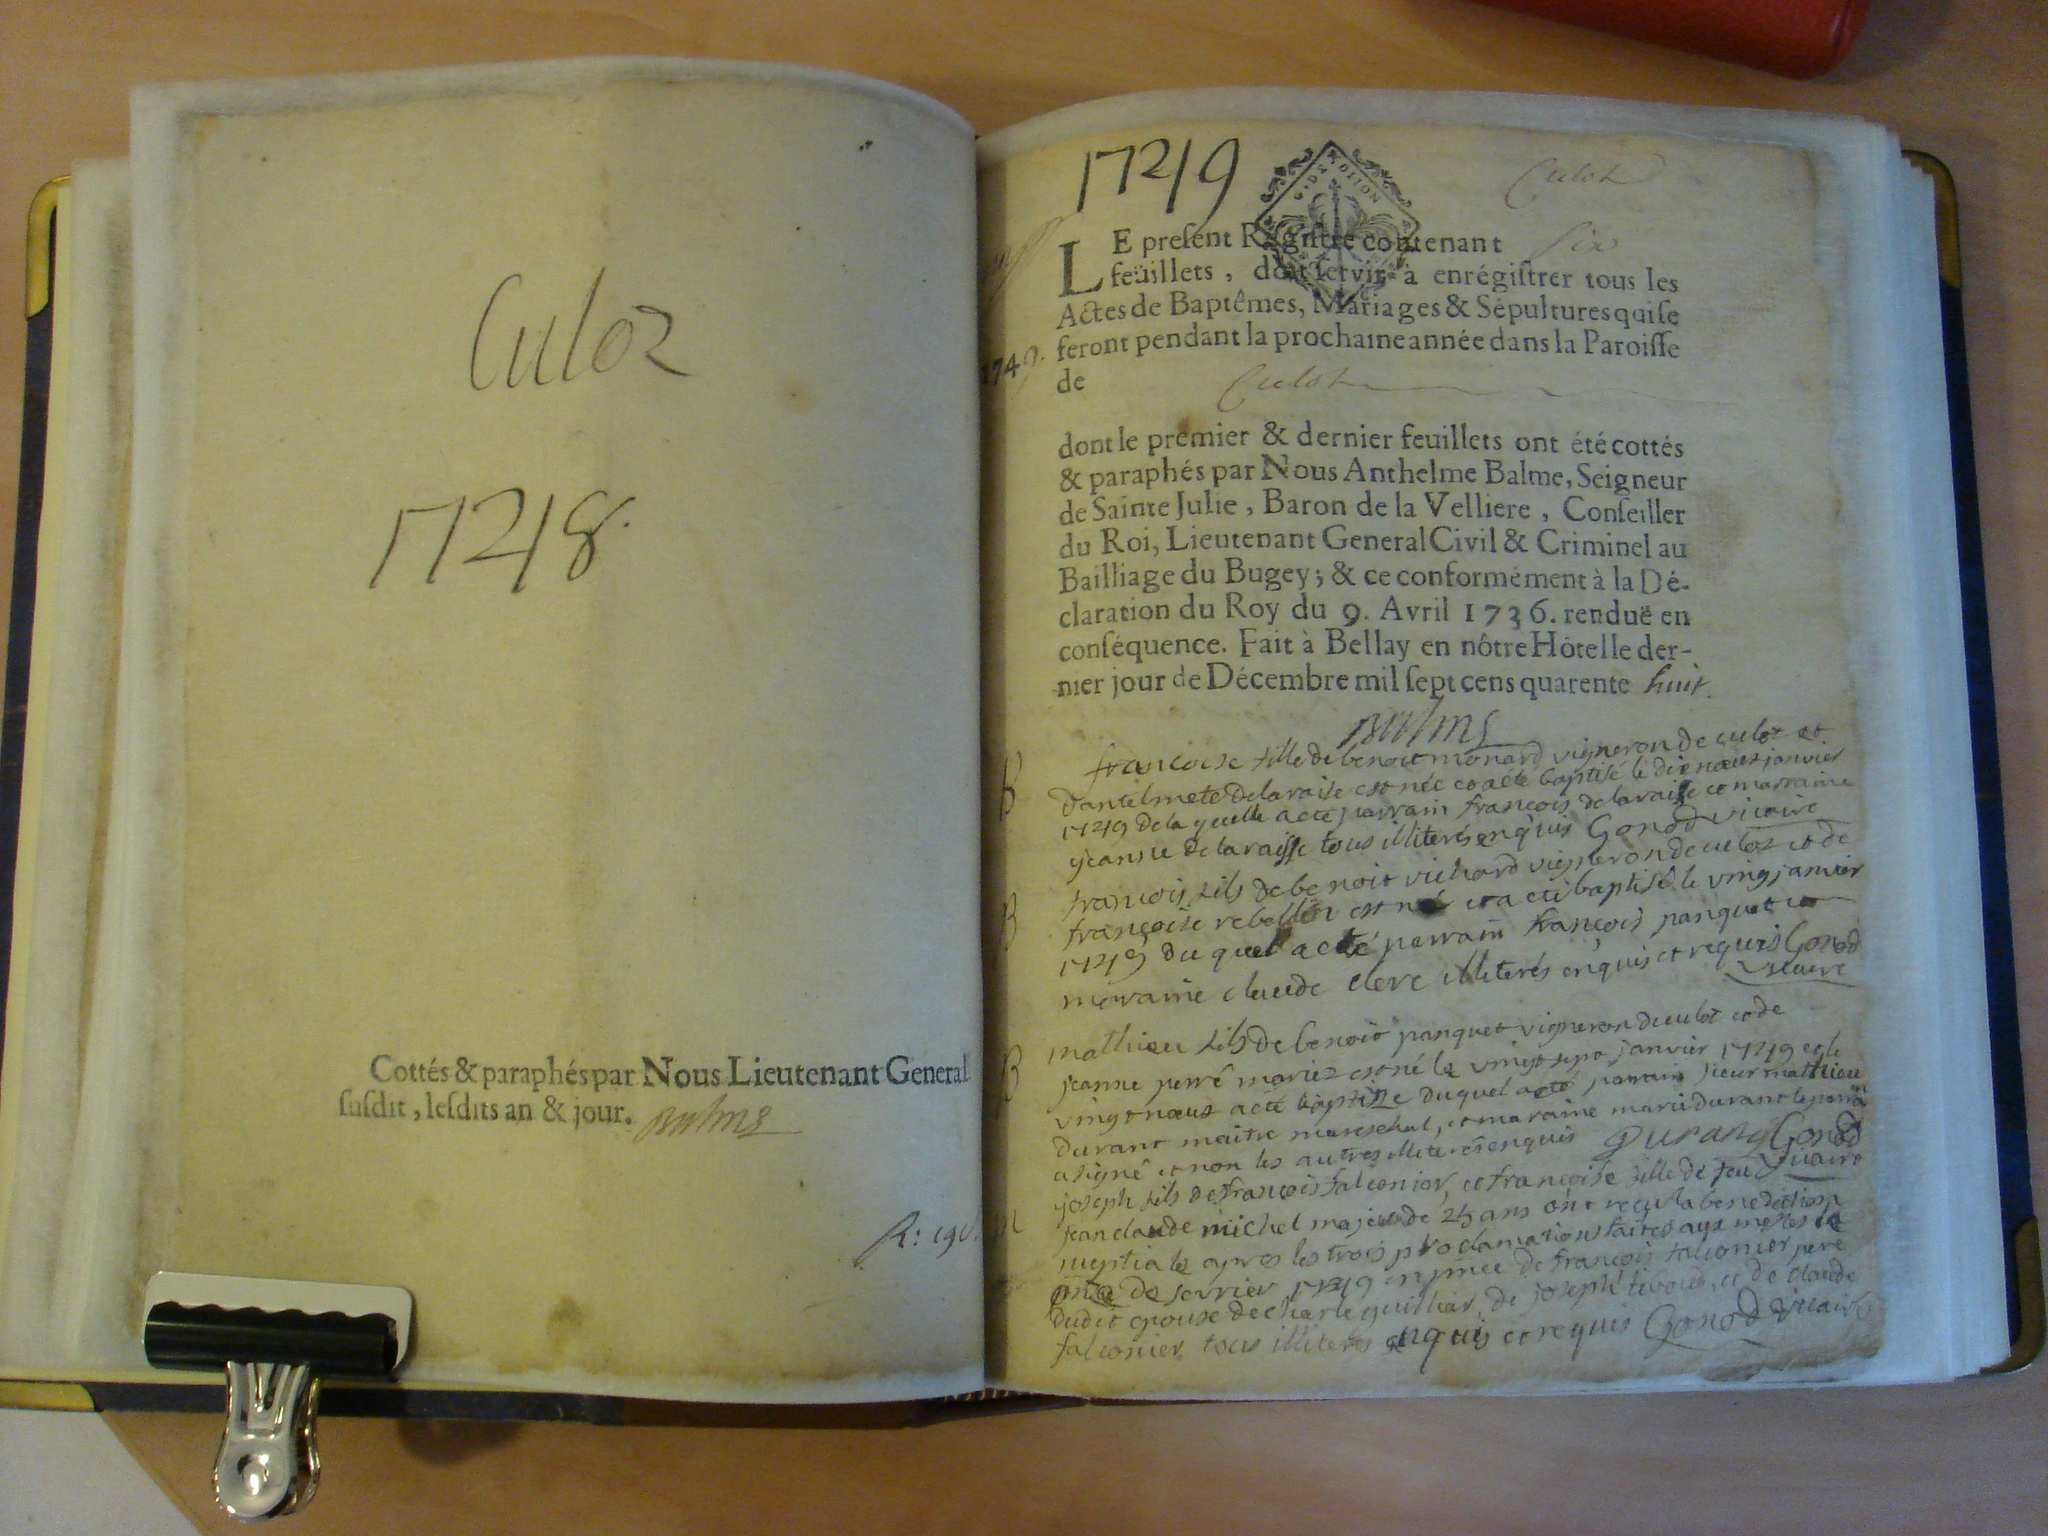 Culoz
1748.
Cottés & paraphés par Nous Lieutenant General
susdit, lesdits an & jour. Balme
1749
Culoz
LE present Registre contenant six
feüillets, doit servir à enrégistrer tous les
Actes de Baptêmes, Mariages & Sépultures qui se
feront pendant la prochaine année dans la Paroisse
1749.
de Culoz
dont le premier & dernier feuillets ont été cottés
& paraphés par Nous Anthelme Balme, Seigneur
de Sainte Julie, Baron de la Velliere, Conseiller
du Roi, Lieutenant General Civil & Criminel au
Bailliage du Bugey; & ce conformément à la Dé-
claration du Roy du 9. Avril 1736. renduë en
conséquence. Fait à Bellay en nôtre Hôtel le der-
nier jour de Décembre mil sept cens quarente huit.
Balme
B francoise fille de benoit monard vigneron de culoz et
dantelmete delaraise est née et a eté baptisé le dixneuf janvier
1749 de la quelle a eté parrain françois delaraisse et marraine
jeanne delaraisse tous illiterés enquis Gonod vicaire
B francois fils de benoit vichard vigneron de culoz et de
françoise est né et a eté baptisé le vingt janvier
1749 du quel a eté parrain françois panquet et
maraine claude clerc illiterés enquis et requis Gonod
vicaire
B mathieu fils de benoit panquet vigneron du culoz et de
jeanne perré mariez est né le vingt sept janvier 1749 et le
vingt neuf a eté baptise duquel a eté parrain sieur mathieu
durant maitre mareschal, et maraine marie durant le parrain
a signé et non les autres illiterés enquis Durand Gonod
vicaire
m joseph fils de françois falconier, et françoise fille de feu
jean claude michel majeurs de 25 ans ont reçu la benediction
nuptiale apres les trois proclamations faites aux messes le
de fevrier 1749 en pnce de françois falconier pere
dudit epoux de charle guillier, de joseph, et de claude
falconier tous illiterés enquis et requis Gonod vicaire